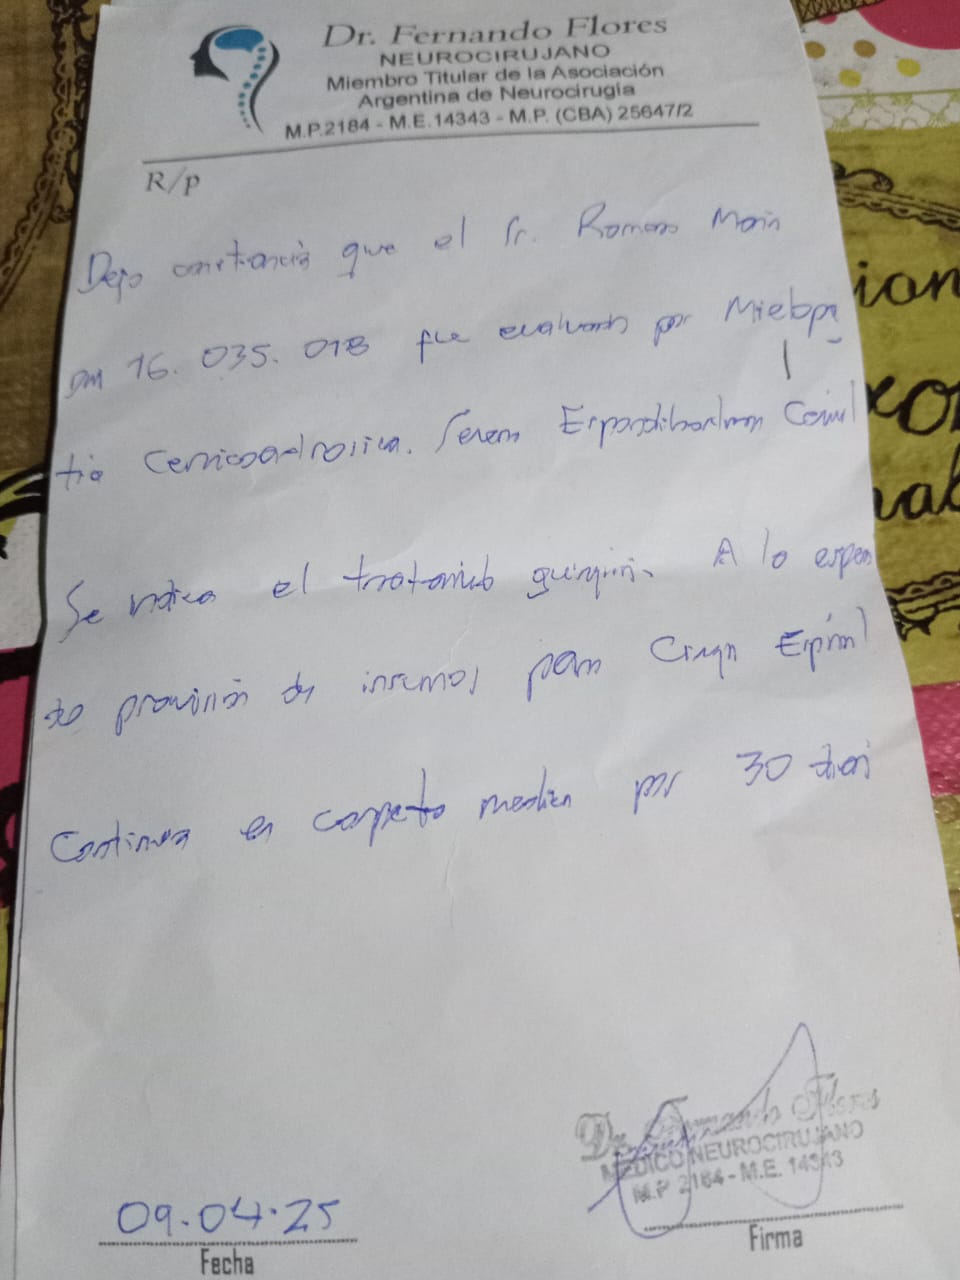 Dr. Fernando Flores
NEUROCIRUJANO
Miembro Titular de la Asociación
Argentina de Neurocirugía
M.P.2184 - M.E.14343 - M.P. (CBA) 25647/2
R/p
Dejo constancia que el Sr. Romero
16.035.018 fue evaluado por Mielopa
tia Severa
Se indica el tratamiento A la espera
de provisión de insumos para Espinal
Continua en carpeta medica por 30 dias
Dr. Fernando Flores
MEDICO NEUROCIRUJANO
M.P 2184 - M.E. 14343
09.04.25
Fecha
Firma
ion